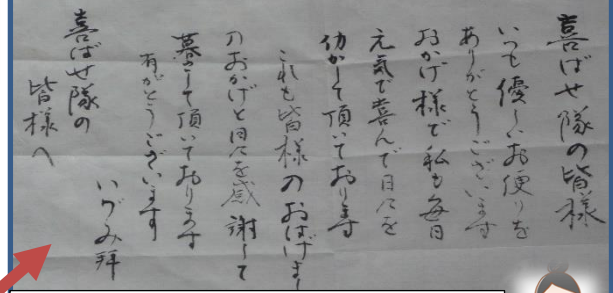 喜ばせ隊の皆様
いつも優しいお便りを
ありがとうございます
おかげ様で私も毎日
元気で喜んで日々を
働かして頂いております
これも皆様のおばげまし
のおかげと日々を感謝して
暮らして頂いております
有がとうございます
いづみ拝
喜ばせ隊の
皆様へ